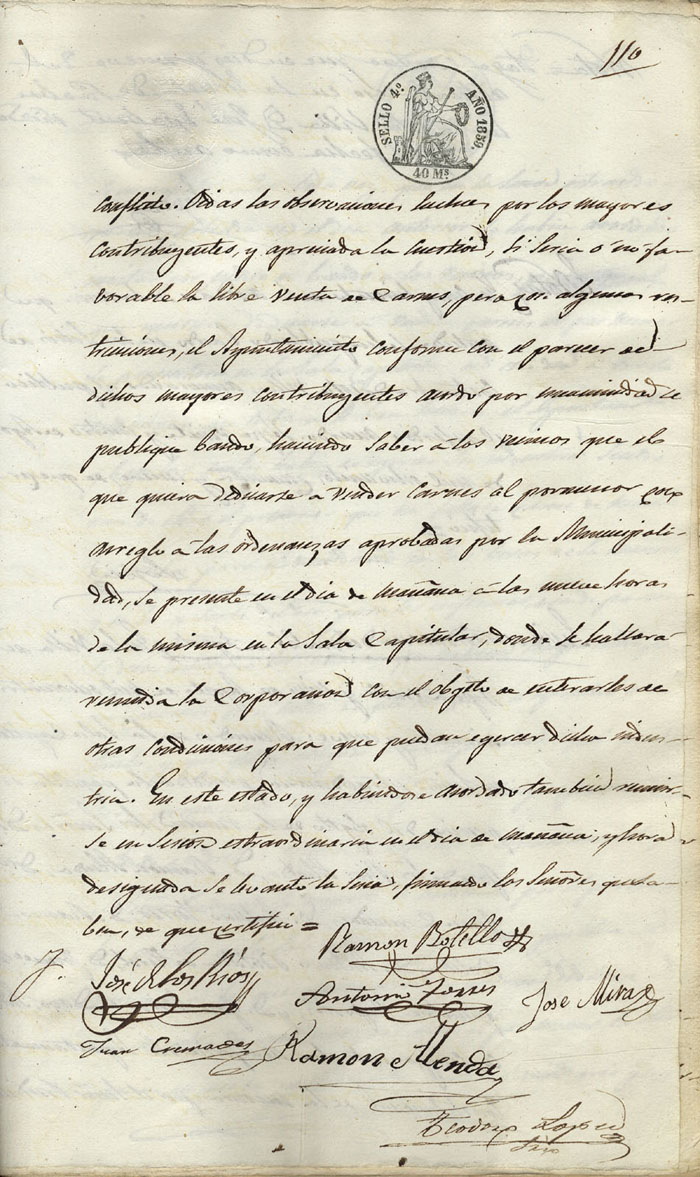 110
SELLO 4º AÑO 1859.
40 Ms
conflicto. Oidas las observaciones hechas por los mayores
contribuyentes, y apreciada la cuestion, si seria ó no fa-
vorable la libre venta de Carnes, pero con algunas res-
tricciones, el Ayuntamiento conforme con el parecer de
dichos mayores contribuyentes acordó por unanimidad se
publique bando, haciendo saber á los vecinos que el
que quiera dedicarse a vender carnes al pormenor con
arreglo á las ordenanzas aprobadas por la Municipali-
dad, se presente en el dia de mañana á las nueve horas
de la misma en la Sala Capitular, donde se hallará
reunida la Corporacion con el objeto de enterarles de
otras condiciones para que puedan egercer dicha indus-
tria. En este estado, y habiendose acordado tambien reunir-
se en sesion extraordinaria en el dia de mañana, y hora
designada se levantó la sesion, firmando los Señores que sa-
ben, de que certifico =
Ramon Botella
José de los Rios
Antonio Torres
Jose Mira
Juan Cremades
Ramon Alenda
Teodoro Lopez
Srio